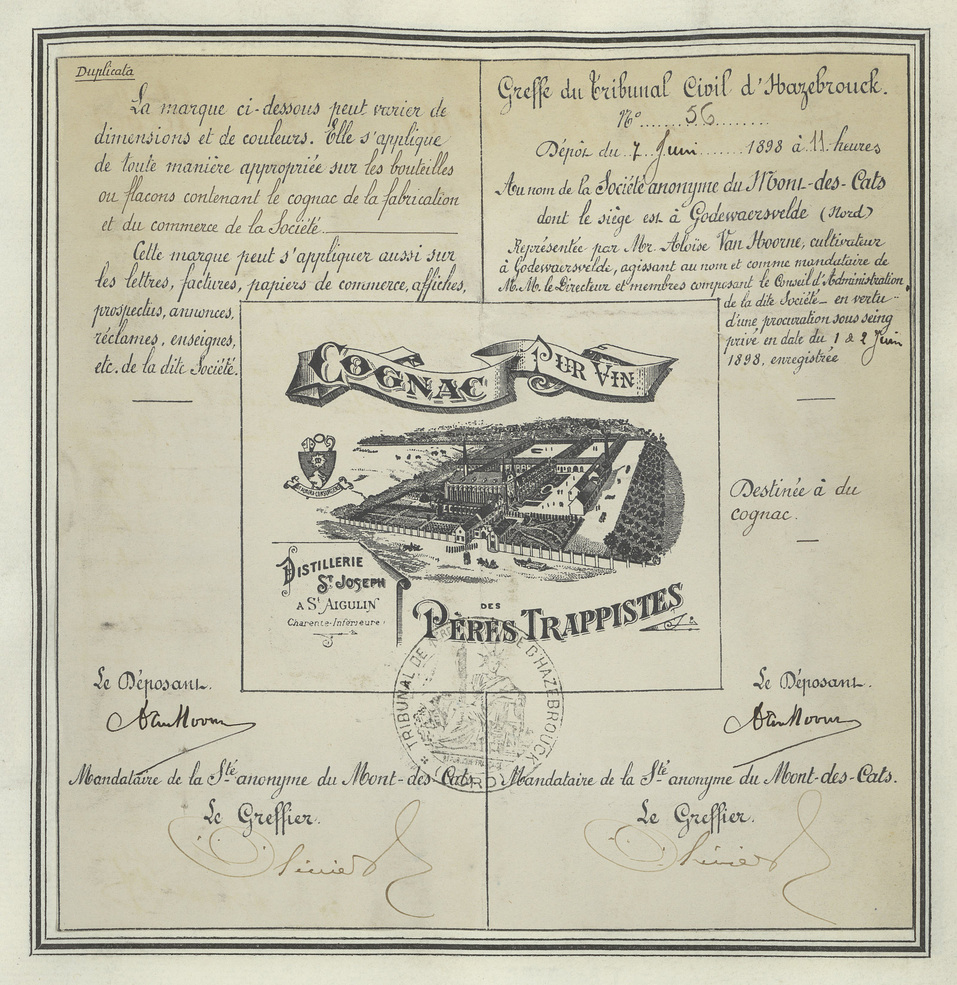 Duplicata
La marque ci-dessous peut varier de
dimensions et de couleurs. Elle s'applique
de toute manière appropriée sur les bouteilles
ou flacons contenant le cognac de la fabrication
et du commerce de la Société.
Cette marque peut s'appliquer aussi sur
les lettres, factures, papiers de commerce, affiches,
prospectus, annonces,
réclames, enseignes,
etc. de la dite Société.
Greffe du Tribunal Civil d'Hazebrouck.
N° 56
Dépôt du 7 Juin 1898 à 11 heures
Au nom de la Société anonyme du Mont-des-Cats
dont le siège est à Godewaersvelde (Nord)
Représentée par Mr. Aloïse Van Hoorne, cultivateur
à Godewaersvelde, agissant au nom et comme mandataire de
M.M. le Directeur et membres composant le Conseil d'Administration
de la dite Société en vertu
d'une procuration sous seing
privé en date du 1 & 2 Juin
1898, enregistrée
Destinée à du
cognac.
COGNAC PUR VIN
DISTILLERIE
ST JOSEPH
A ST AIGULIN
Charente-Inférieure
DES
PÈRES TRAPPISTES
TRIBUNAL DE D'HAZEBROUCK
(NORD)
Le Déposant.
Mandataire de la Sté anonyme du Mont-des-Cats
Le Greffier.
Le Déposant.
Mandataire de la Sté anonyme du Mont-des-Cats.
Le Greffier.